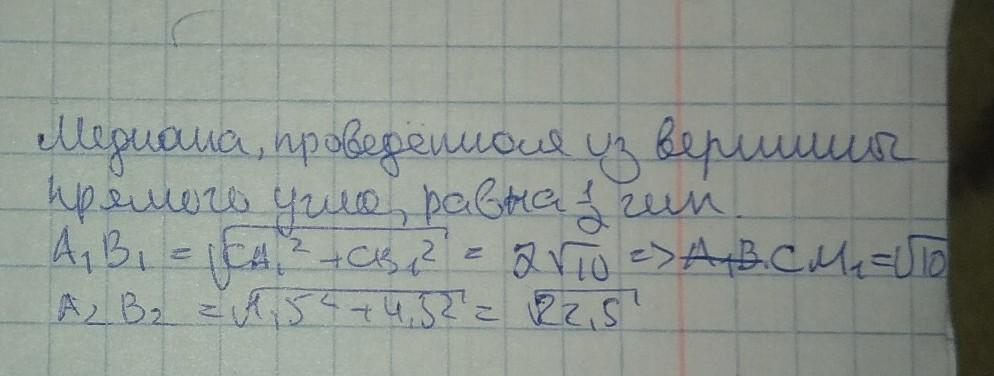 Медиана, проведённая из вершины
прямого угла, равна 1/2 гип.
A₁B₁ = √(CA₁² + CB₁²) = 2√10 => A₁B. CM₁ = √10
A₂B₂ = √(1,5² + 4,5²) = √22,5